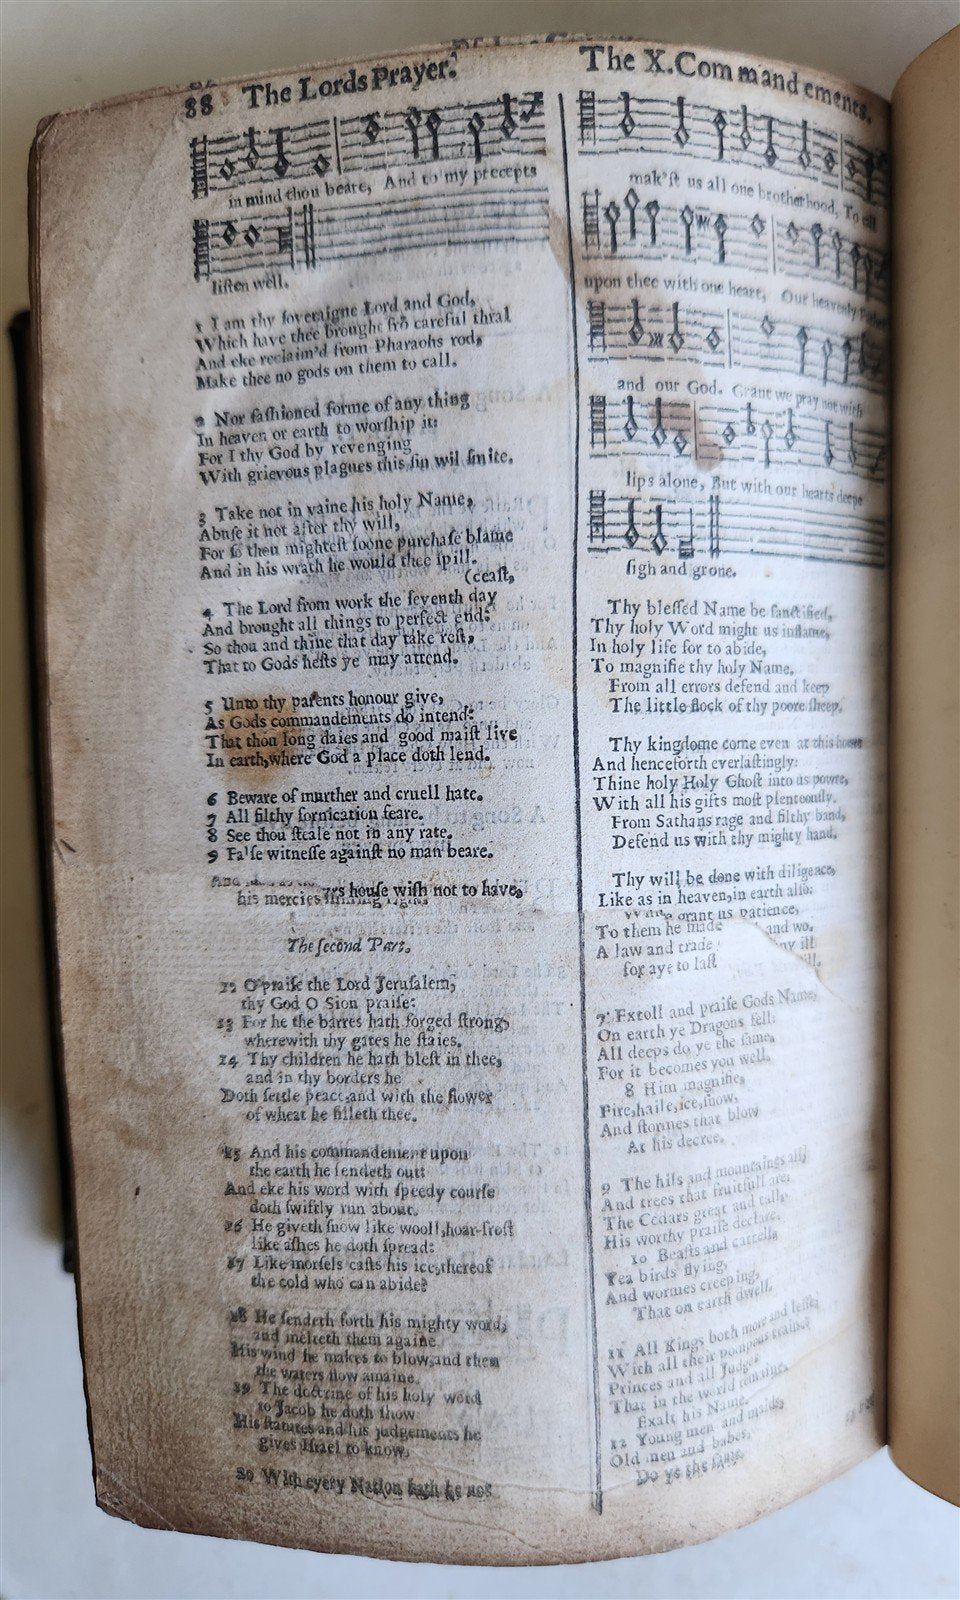 88 The Lords Prayer.
in mind thou beare, And to my precepts
listen well.
1 I am thy soveraigne Lord and God,
Which have thee brought frõ careful thral
And eke reclaim'd from Pharaohs rod,
Make thee no gods on them to call.
2 Nor fashioned forme of any thing
In heaven or earth to worship it:
For I thy God by revenging
With grievous plagues this sin wil smite.
3 Take not in vaine his holy Name,
Abuse it not after thy will,
For so thou mightest soone purchase blame
And in his wrath he would thee spill.
(ceast,
4 The Lord from work the seventh day
And brought all things to perfect end:
So thou and thine that day take rest,
That to Gods hests ye may attend.
5 Unto thy parents honour give,
As Gods commandements do intend:
That thou long daies and good maist live
In earth, where God a place doth lend.
6 Beware of murther and cruell hate.
7 All filthy fornication feare.
8 See thou steale not in any rate.
9 False witnesse against no man beare.
house wish not to have,
his mercies
The second Part.
12 O praise the Lord Jerusalem,
thy God O Sion praise:
13 For he the barres hath forged strong,
wherewith thy gates he staies.
14 Thy children he hath blest in thee,
and in thy borders he
Doth settle peace, and with the flower
of wheat he filleth thee.
15 And his commandement upon
the earth he sendeth out:
And eke his word with speedy course
doth swiftly run about.
16 He giveth snow like wooll, hoar-frost
like ashes he doth spread:
17 Like morsels casts his ice, thereof
the cold who can abide?
18 He sendeth forth his mighty word,
and melteth them againe
His wind he makes to blow, and then
the waters flow amaine.
19 The doctrine of his holy word
to Jacob he doth show
His statutes and his judgements he
gives Israel to know.
20 With every Nation hath he not
The X. Commandements.
mak'st us all one brotherhood, To call
upon thee with one heart, Our heavenly Father
and our God. Grant we pray not with
lips alone, But with our hearts deepe
sigh and grone.
Thy blessed Name be sanctified,
Thy holy Word might us inflame,
In holy life for to abide,
To magnifie thy holy Name.
From all errors defend and keep
The little flock of thy poore sheep.
Thy kingdome come even at this houre
And henceforth everlastingly:
Thine holy Holy Ghost into us powre,
With all his gifts most plenteously.
From Sathans rage and filthy band,
Defend us with thy mighty hand.
Thy will be done with diligence,
Like as in heaven, in earth also:
grant us patience,
To them he made and wo.
A law and trade ill
for aye to last
7 Extoll and praise Gods Name,
On earth ye Dragons fell:
All deeps do ye the same,
For it becomes you well.
8 Him magnifie,
Fire, haile, ice, snow,
And stormes that blow
At his decree.
9 The hils and mountaings all,
And trees that fruitfull are:
The Cedars great and tall,
His worthy praise declare.
10 Beasts and cattell,
Yea birds flying,
And wormes creeping,
That on earth dwell.
11 All Kings both more and lesse,
With all their pompous traine,
Princes and all Judges
That in the world
Exalt his Name.
12 Young men and maids,
Old men and babes,
Do ye the same.